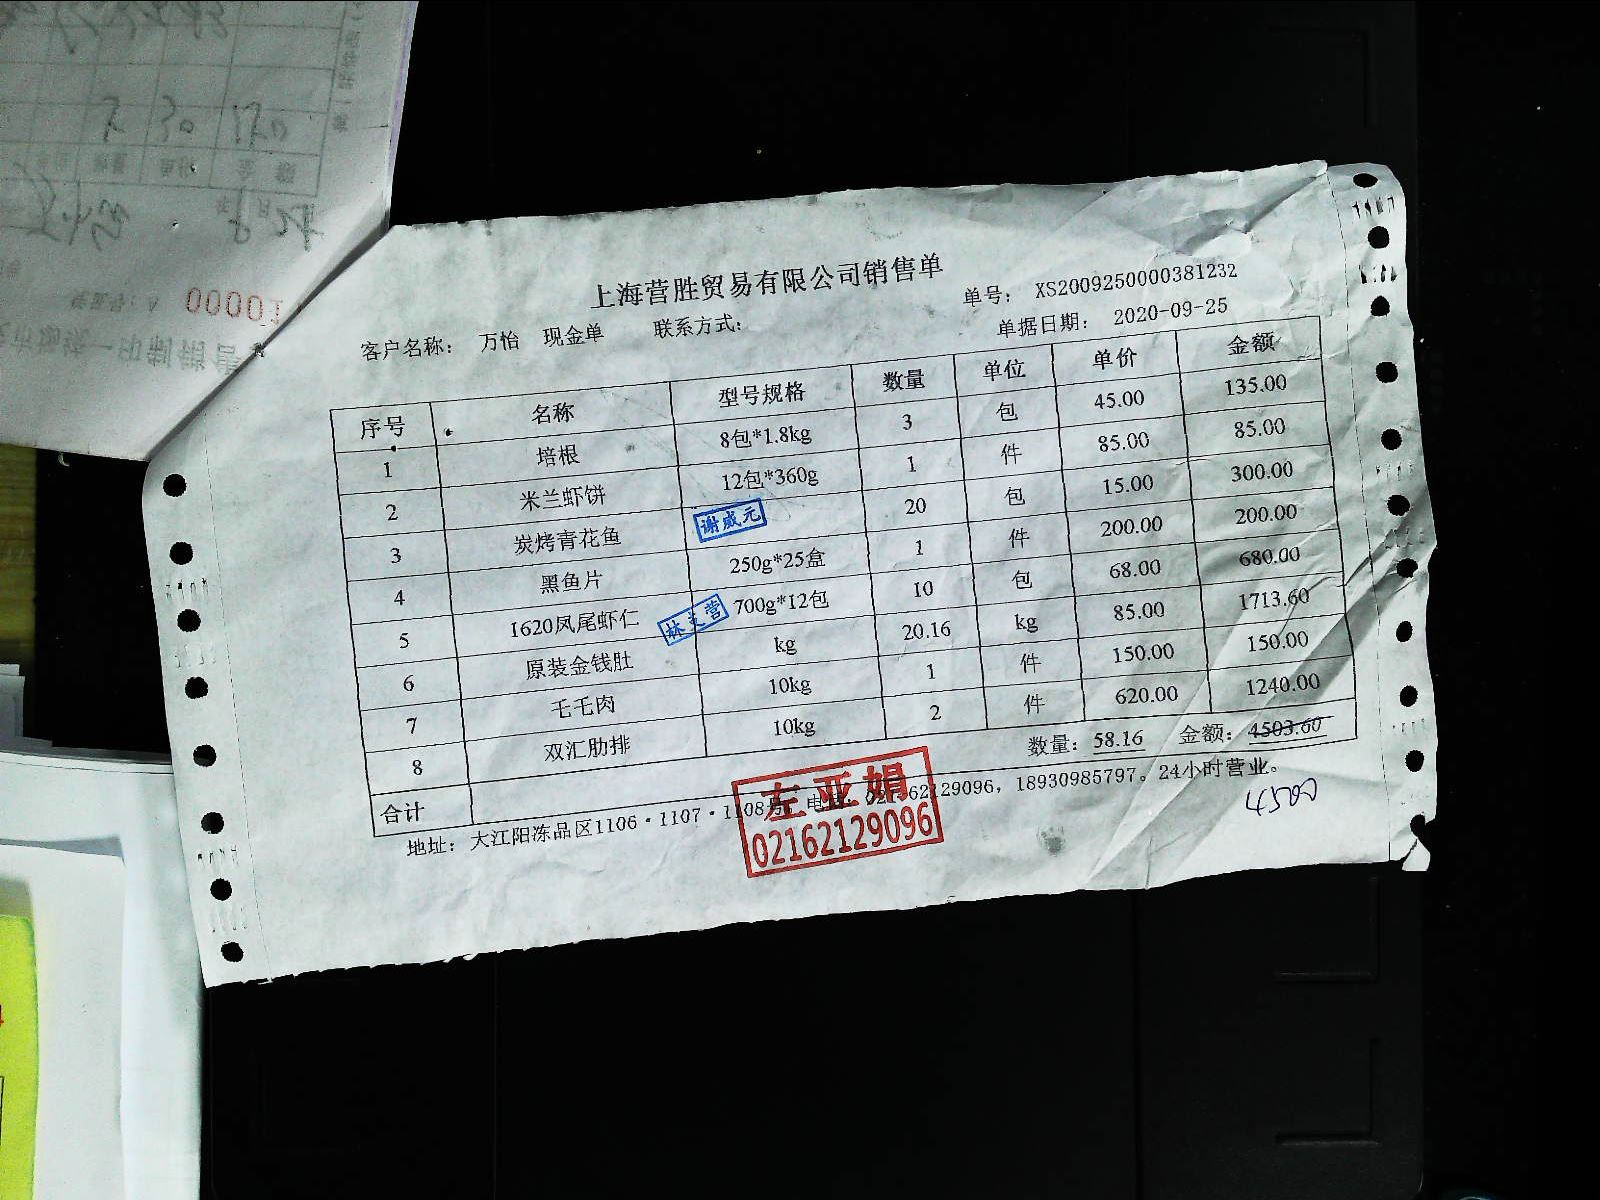 上海营胜贸易有限公司销售单
单号: XS2009250000381232
客户名称: 万怡 现金单 联系方式: 单据日期: 2020-09-25
序号 名称 型号规格 数量 单位 单价 金额
1 培根 8包*1.8kg 3 包 45.00 135.00
2 米兰虾饼 12包*360g 1 件 85.00 85.00
3 炭烤青花鱼 20 包 15.00 300.00
谢威元
4 黑鱼片 250g*25盒 1 件 200.00 200.00
5 1620凤尾虾仁 700g*12包 10 包 68.00 680.00
6 原装金钱肚 kg 20.16 kg 85.00 1713.60
7 毛毛肉 10kg 1 件 150.00 150.00
8 双汇肋排 10kg 2 件 620.00 1240.00
合计 数量: 58.16 金额: 4503.60
4500
地址: 大江阳冻品区1106·1107·1108号。电话: 021-62129096, 18930985797。24小时营业。
左亚娟
02162129096